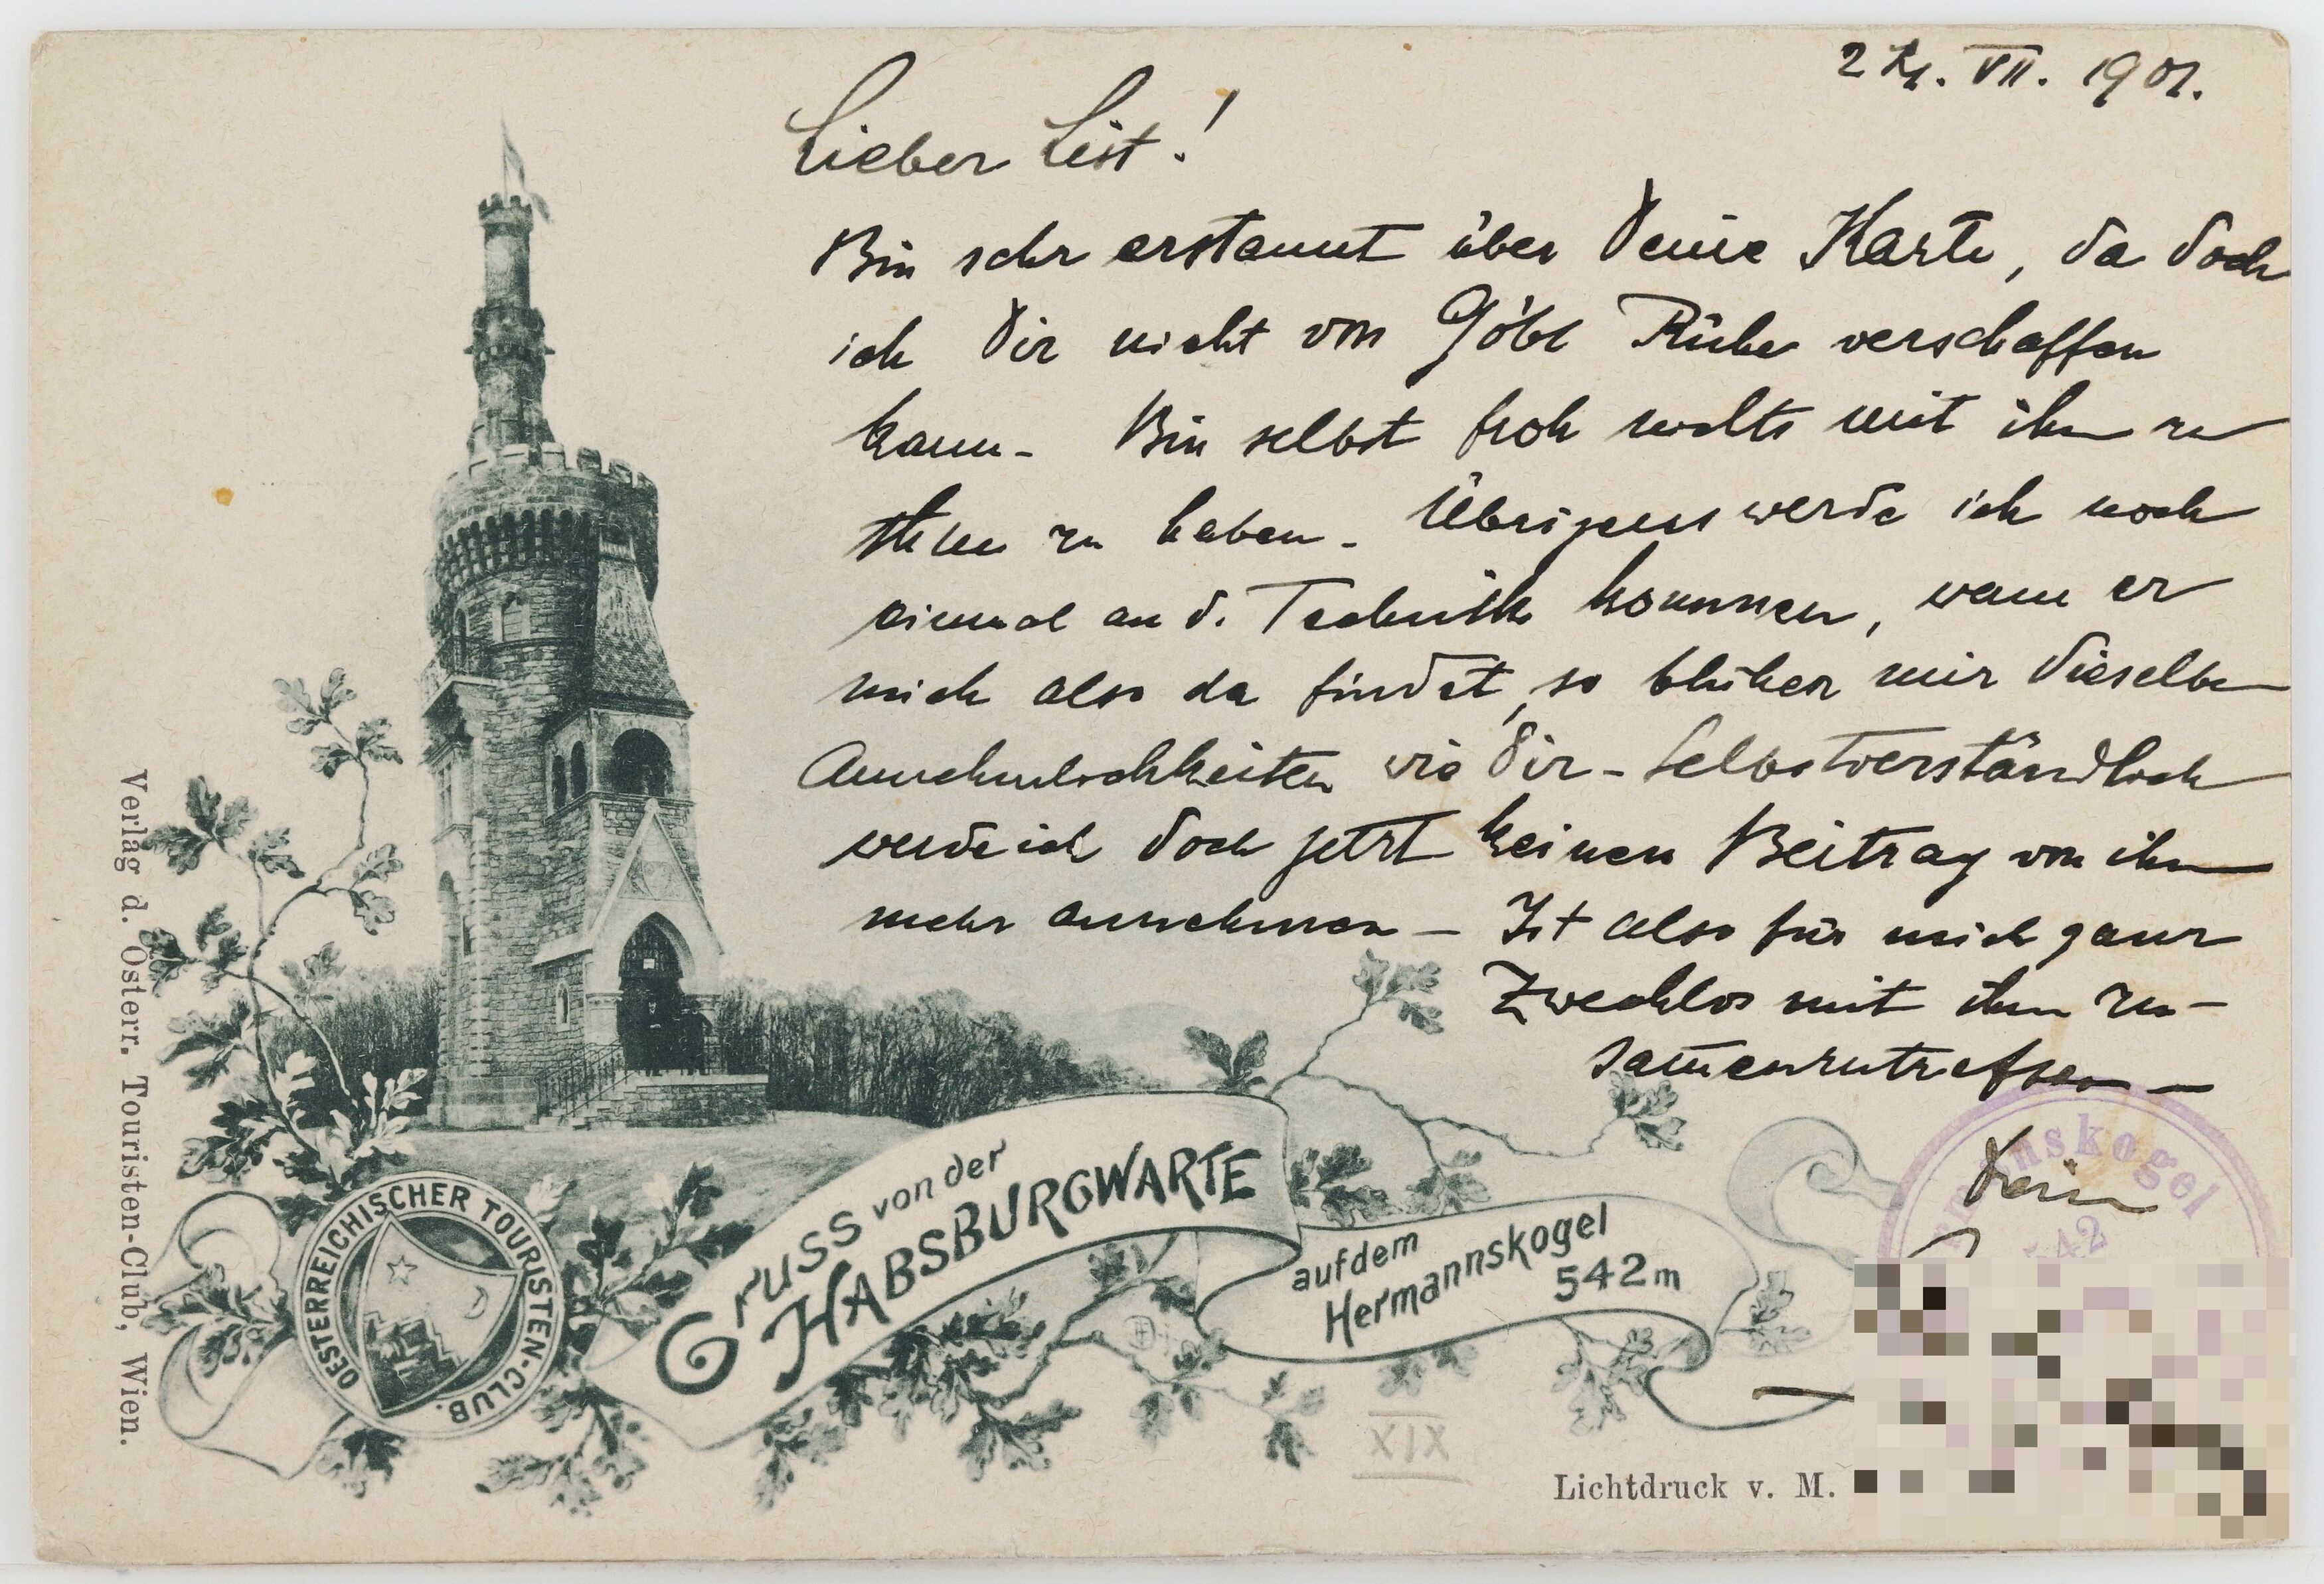 24. VII. 1901.
Lieber List!
Bin sehr erstaunt über Deine Karte, da doch
ich Dir nicht von Göbl Ruhe verschaffen
kann - Bin selbst froh nichts mit ihm zu
thun zu haben - Übrigens werde ich noch
einmal an d. Technik kommen, wenn er
mich also da findet, so blühen mir dieselben
Annehmlichkeiten wie Dir - Selbstverständlich
werde ich doch jetzt keinen Beitrag von ihm
mehr annehmen - Ist also für mich ganz
Zwecklos mit ihm zu-
sam̅enzutreffen -
Dein
Gruss von der
HABSBURGWARTE
auf dem
Hermannskogel
542 m
OESTERREICHISCHER TOURISTEN-CLUB.
Verlag d. Österr. Touristen-Club, Wien.
XIX
Lichtdruck v. M.
nskogel
542